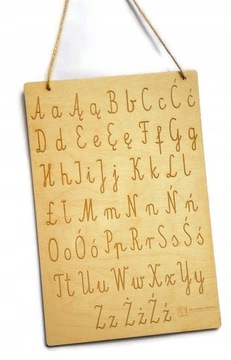 A a Ą ą B b C c Ć ć
D d E e Ę ę F f G g
H h I i J j K k L l
Ł ł M m N n Ń ń
O o Ó ó P p R r S s Ś ś
T t U u W w X x Y y
Z z Ż ż Ź ź